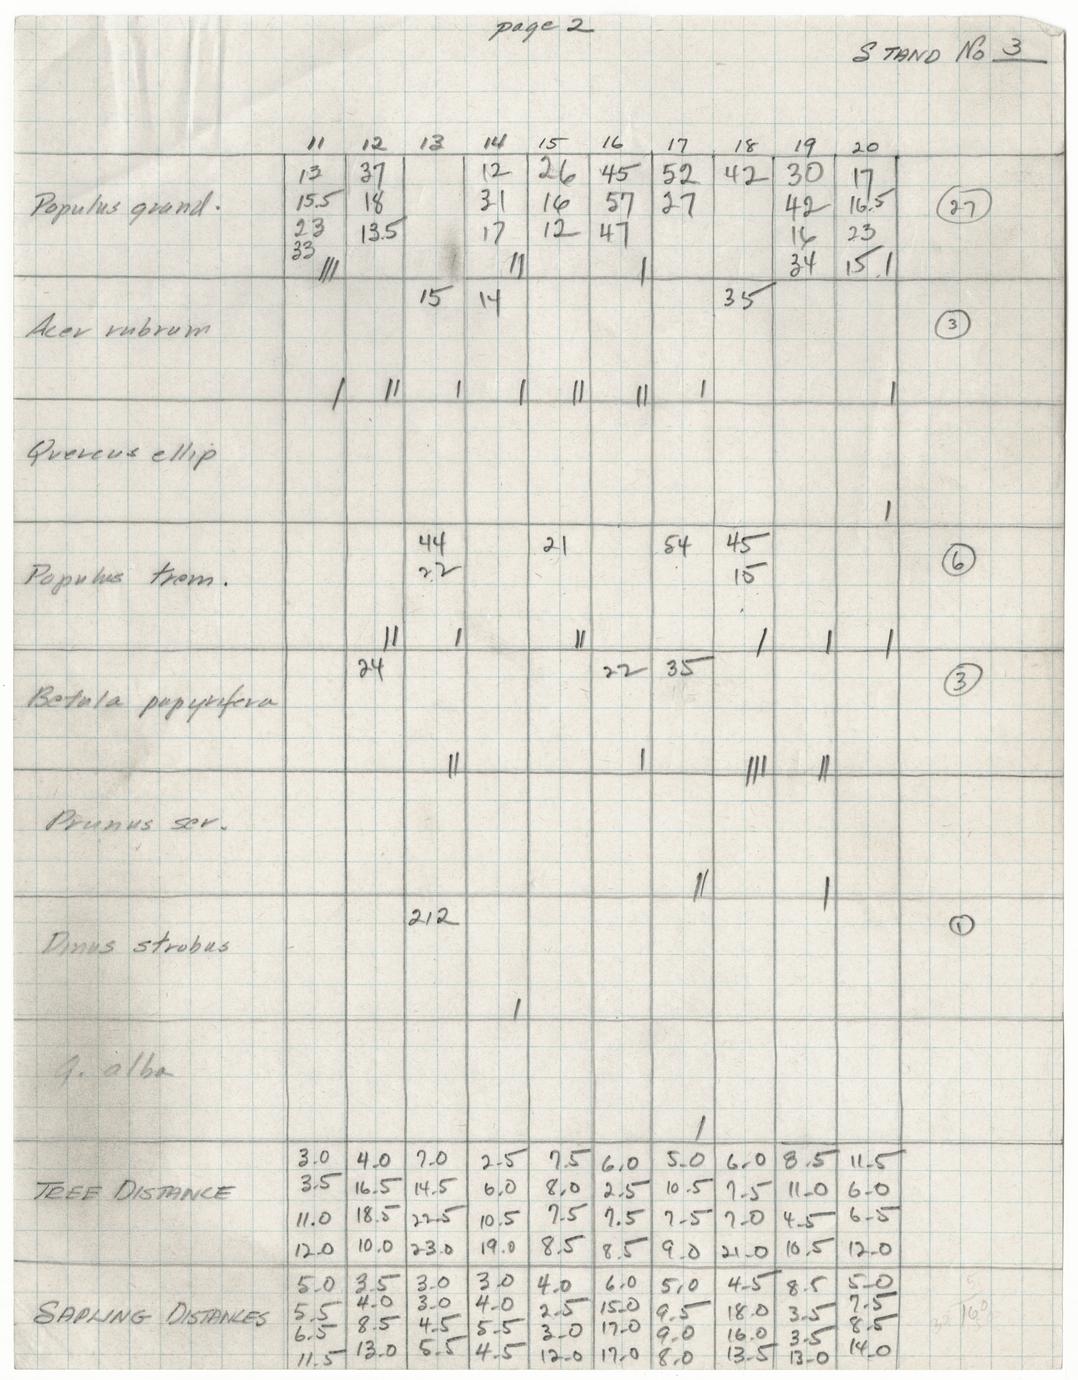 page 2
STAND No 3
11 12 13 14 15 16 17 18 19 20
13 37 12 26 45 52 42 30 17
Populus grand. 15.5 18 31 16 57 27 42 16.5 (27)
23 13.5 17 12 47 16 23
33 34 15
||| || | |
15 14 35
Acer rubrum (3)
| || | | || || | |
Quercus ellip
|
44 21 54 45
Populus trem. 22 15 (6)
|| | || | | |
24 22 35
Betula papyrifera (3)
|| | |||| ||
Prunus ser.
|| |
212
Pinus strobus (1)
|
Q. alba
|
3.0 4.0 7.0 2.5 7.5 6.0 5.0 6.0 8.5 11.5
TREE DISTANCE 3.5 16.5 14.5 6.0 8.0 2.5 10.5 7.5 11.0 6.0
11.0 18.5 22.5 10.5 7.5 7.5 7.5 7.0 4.5 6.5
12.0 10.0 23.0 19.0 8.5 8.5 9.0 21.0 10.5 12.0
5.0 3.5 3.0 3.0 4.0 6.0 5.0 4.5 8.5 5.0
SAPLING DISTANCES 5.5 4.0 3.0 4.0 2.5 15.0 9.5 18.0 3.5 7.5
6.5 8.5 4.5 5.5 3.0 17.0 9.0 16.0 3.5 8.5
11.5 13.0 5.5 4.5 12.0 17.0 8.0 13.5 13.0 14.0